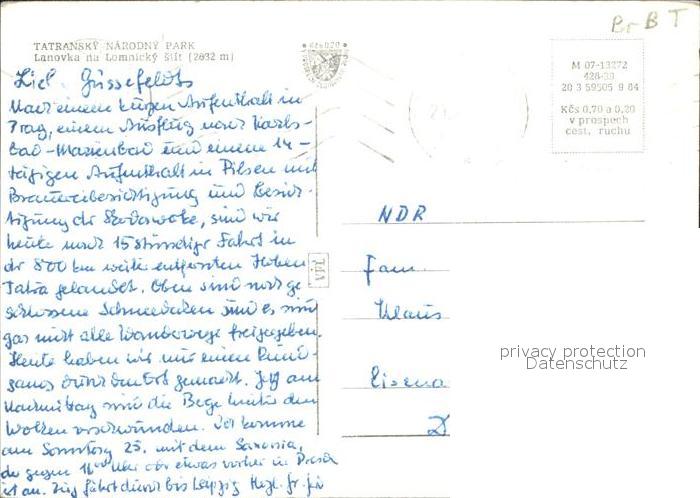 TATRANSKÝ NÁRODNÝ PARK
Lanovka na Lomnický štít (2632 m)
M 07-13272
428-33
20 3 59505 9 84
Kčs 0,70 a 0,20
v prospech
cest. ruchu
Br B T
Nach einem kurzen Aufenthalt in
Prag, einem Ausflug nach Karls-
bad - Marienbad und einem 14-
tägigen Aufenthalt in Pilsen mit
Brauereibesichtigung und Besich-
tigung der Skodawerke, sind wir
heute nach 15 stündiger Fahrt in
der 800 km weiter entfernten Hohen
Tatra gelandet. Oben sind noch ge-
schlossene Schneedecken und es sind
gar nicht alle Wanderwege freigegeben.
Heute haben wir nur einen Rund-
gang durch den Ort gemacht. Jetzt am
Nachmittag sind die Berge hinter den
Wolken verschwunden. Ich komme
am Sonntag 25. mit dem Saxonia,
der gegen Uhr oder etwas vorher in
ist an. Zug fährt durch bis Leipzig Hzl. Gr.
VPL
NDR
Fam.
Klaus
Eisena
D
privacy protection
Datenschutz